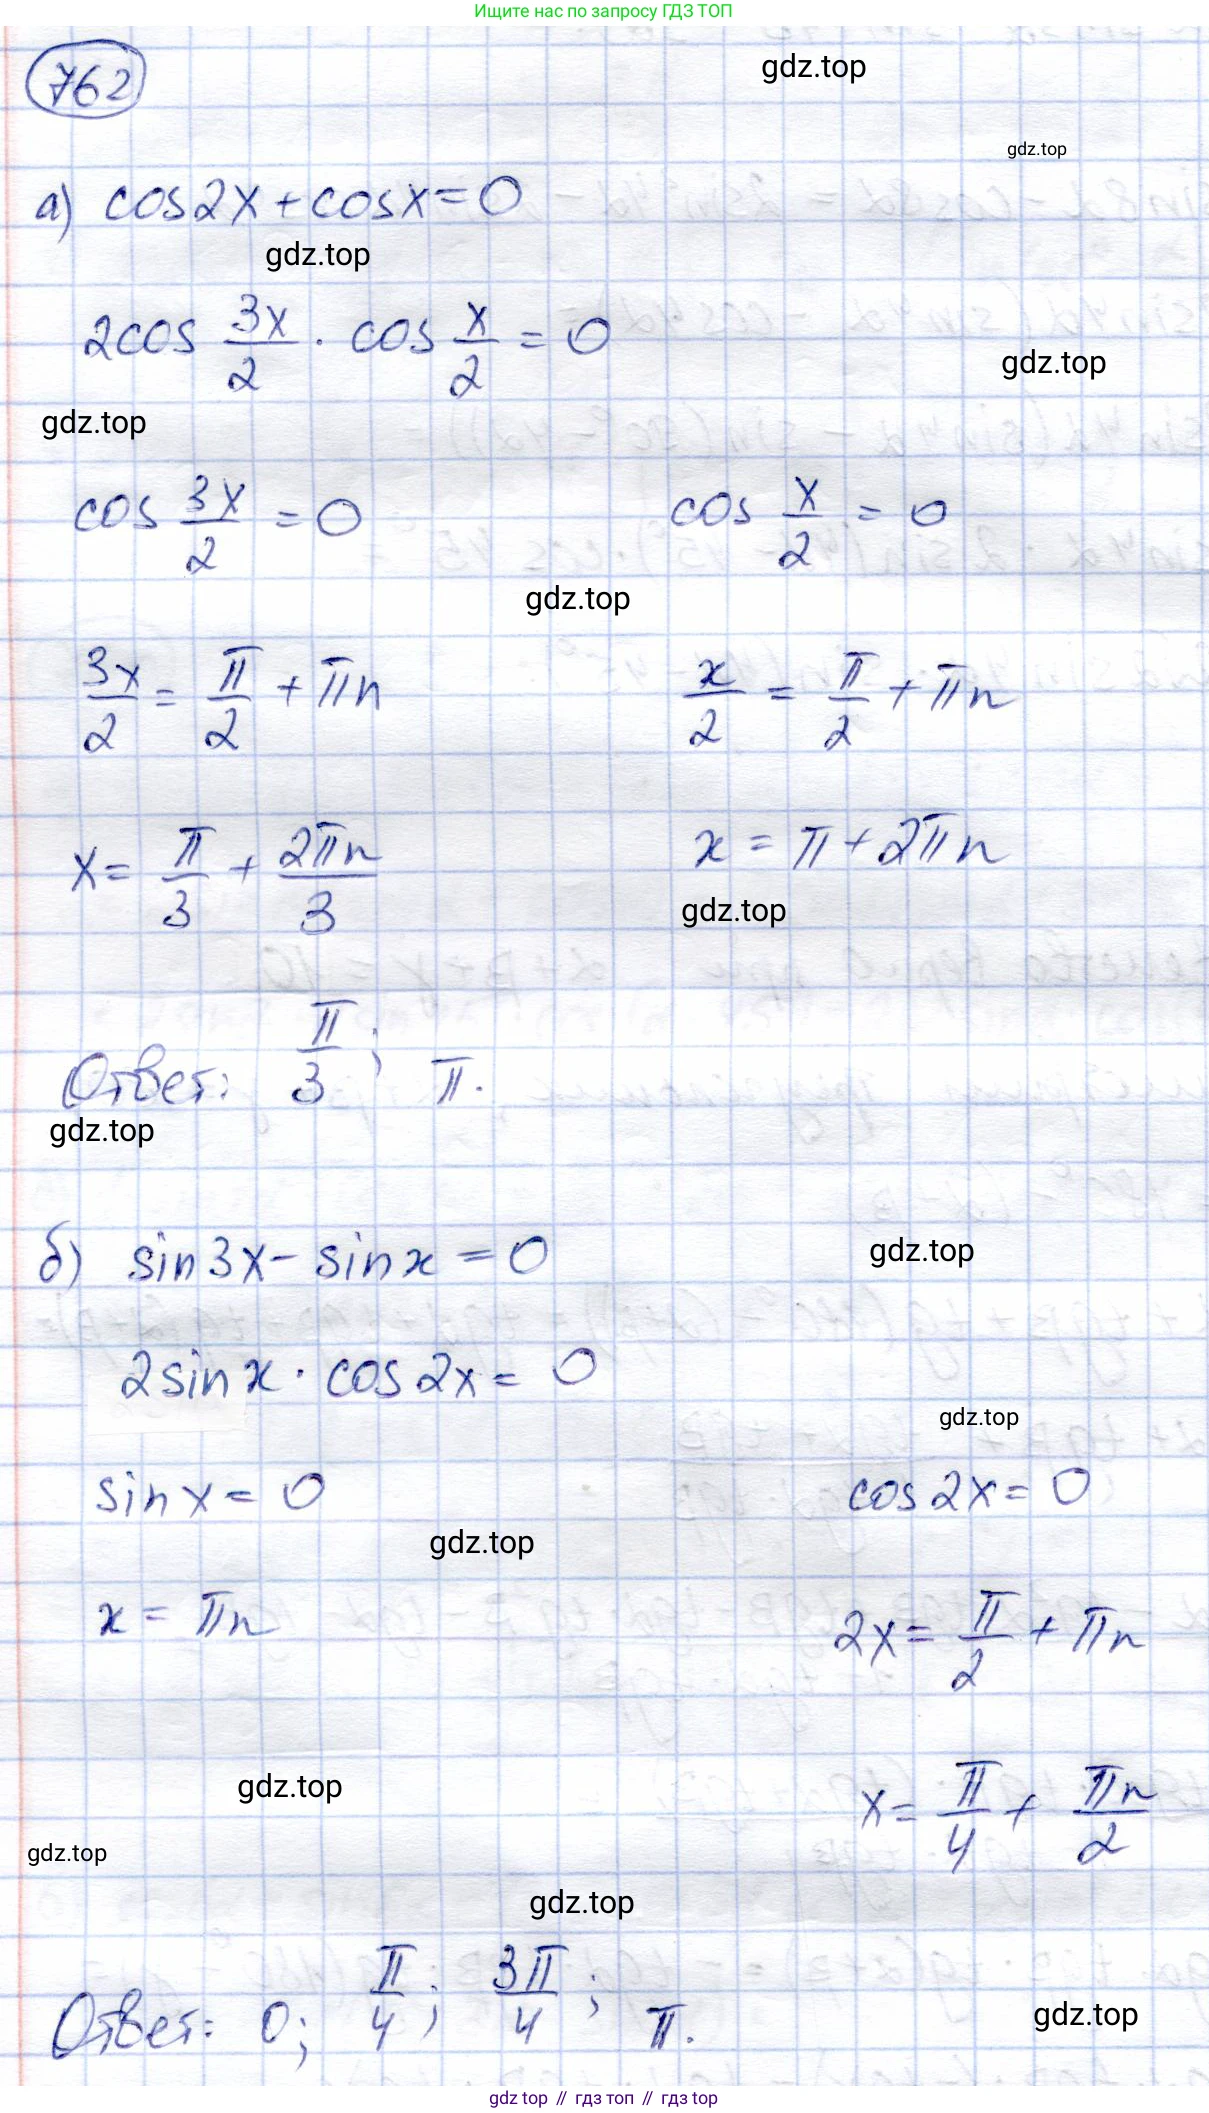 Ищите нас по запросу ГДЗ ТОП
762
gdz.top
gdz.top
а) cos2x+cosx=0
gdz.top
2cos 3x/2 · cos x/2 = 0
gdz.top
gdz.top
cos 3x/2 = 0 cos x/2 = 0
gdz.top
3x/2 = π/2 + πn x/2 = π/2 + πn
x = π/3 + 2πn/3 x = π + 2πn
gdz.top
Ответ: π/3; π.
gdz.top
б) sin3x - sinx = 0
gdz.top
2sinx · cos2x = 0
gdz.top
sinx = 0 cos2x = 0
gdz.top
x = πn 2x = π/2 + πn
gdz.top
x = π/4 + πn/2
gdz.top
gdz.top
Ответ: 0; π/4; 3π/4; π.
gdz.top
gdz top // гдз топ // gdz top